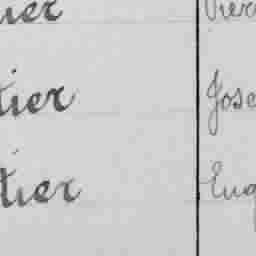 ier Pier
tier Jose
tier Eug